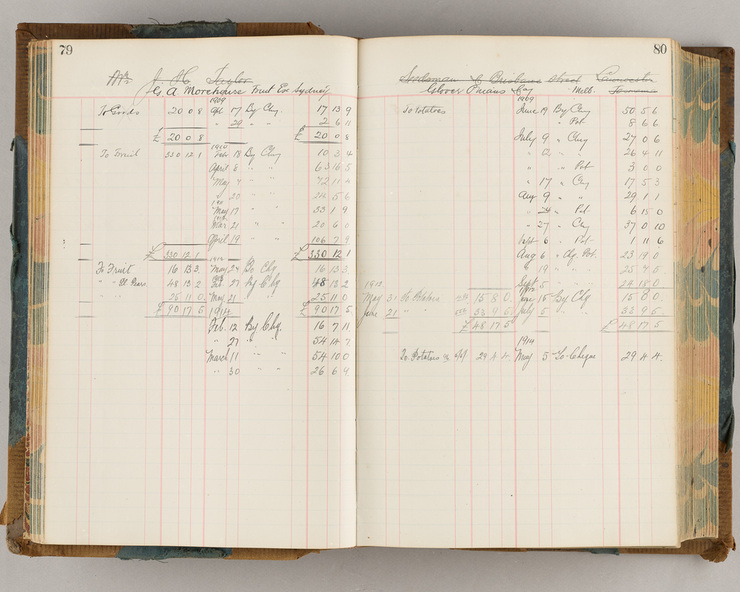 79
J. H. Taylor
G A Morehouse Fruit Ex Sydney
1909
To Goods 20 0 8 Apl 17 By Chq 17 13 9
" 20 " " 2 6 11
£ 20 0 8 £ 20 0 8
1910
To Fruit 330 12 1 Feb 18 By Chq 10 3 4
April 6 " " 63 16 5
May 7 " " 72 11
" 20 " " 24 5 6
May 17 " " 33 1 9
Mar 21 " " 20 6 0
April 19 " " 106 7 9
£ 330 12 1 £ 330 12 1
To Fruit 16 13 3 May 24 By Chq 16 13 3
" " 48 13 2 Feb 27 By Chq 48 13 2
" " 25 11 0 May 21 25 11 0
£ 90 17 5 £ 90 17 5
1914
Feb. 12 By Chq 16 7 11
" 27 " " 54 14 7
March 11 " " 54 10 0
" 30 " " 26 6 9
80
Seedsman & Brisbane Street
Glover Melb.
1909
To Potatoes June 19 By Chq 50 5 6
" Pot 8 6 6
July 9 " Chq 27 0 6
" 12 " " 26 4 11
" " Pot 3 0 0
" 17 " Chq 17 5 3
Aug 9 " " 29 1 1
" 24 " Pot 6 15 0
" 27 " Chq 37 0 10
Sept 6 " Pot 1 11 6
Aug 6 " Chq Pot 23 19 0
" 19 " " 25 7 5
Sept 5 " " 24 18 0
1912
May 31 To Potatoes 15 8 0 June 15 By Chq 15 8 0
June 21 " " 33 9 5 July 5 " 33 9 5
£ 48 17 5 £ 48 17 5
1914
To Potatoes 29 4 4 May 5 To Cheque 29 4 4